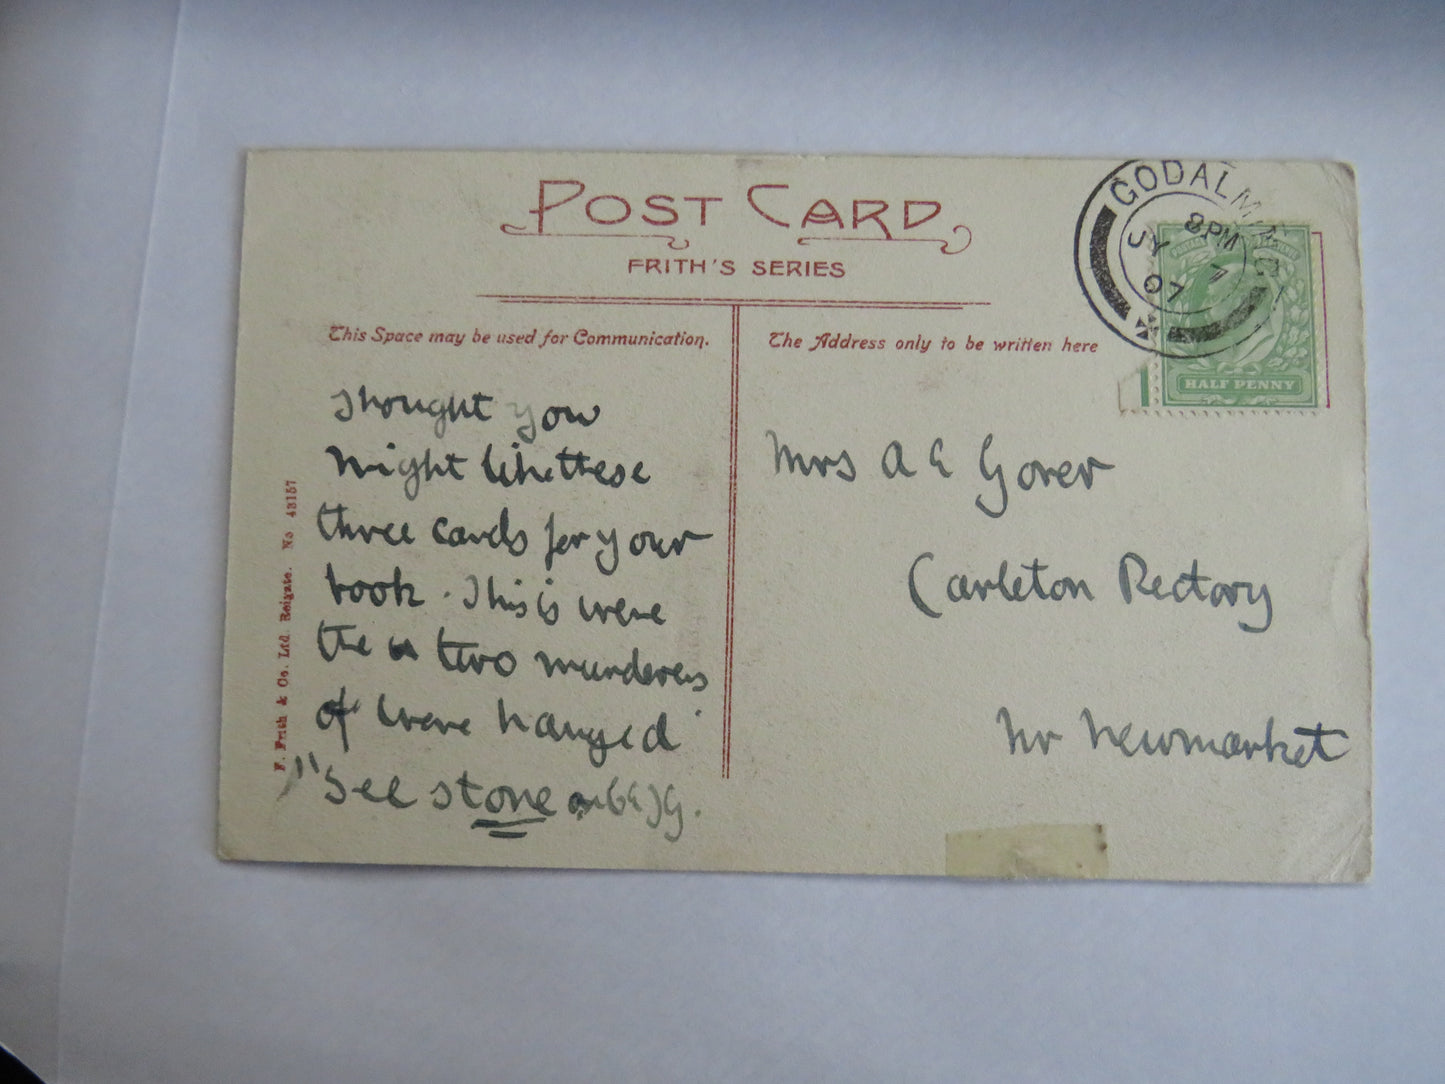 POST CARD
FRITH'S SERIES
This Space may be used for Communication.
The Address only to be written here
GODALMING
8 PM
JY 7
07
HALF PENNY
F. Frith & Co. Ltd. Reigate. No 43157
I thought you
might like these
three cards for your
book. This is were
the two murderers
of were hanged
"See stone
Mrs A E Gover
Carleton Rectory
Nr Newmarket